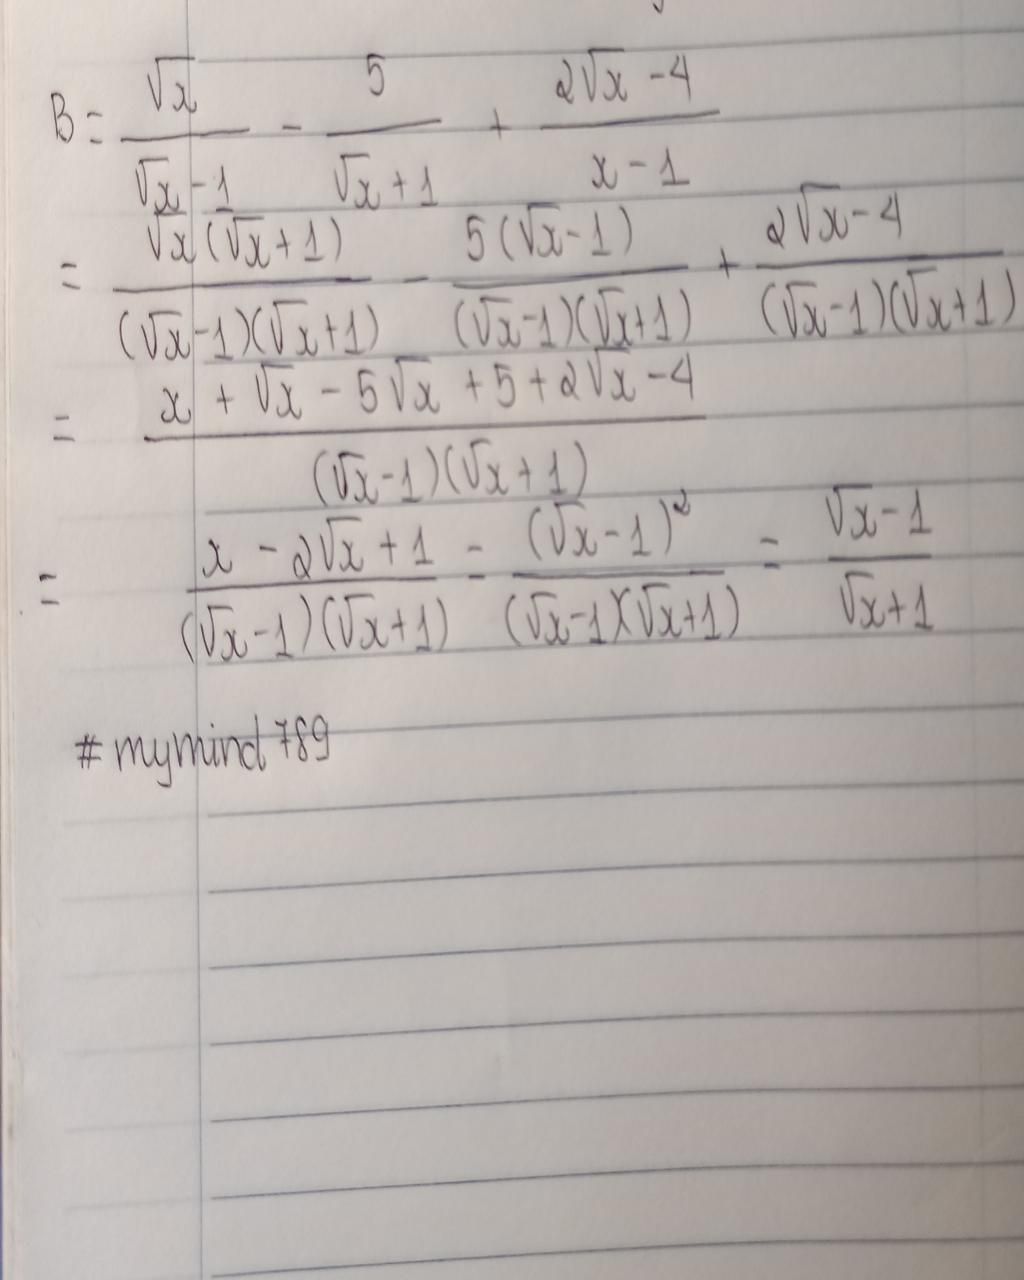 B = √x / (√x - 1) - 5 / (√x + 1) + (2√x - 4) / (x - 1)
= √x(√x + 1) / (√x - 1)(√x + 1) - 5(√x - 1) / (√x - 1)(√x + 1) + (2√x - 4) / (√x - 1)(√x + 1)
= (x + √x - 5√x + 5 + 2√x - 4) / (√x - 1)(√x + 1)
= (x - 2√x + 1) / (√x - 1)(√x + 1) = (√x - 1)² / (√x - 1)(√x + 1) = (√x - 1) / (√x + 1)
# mymind 789